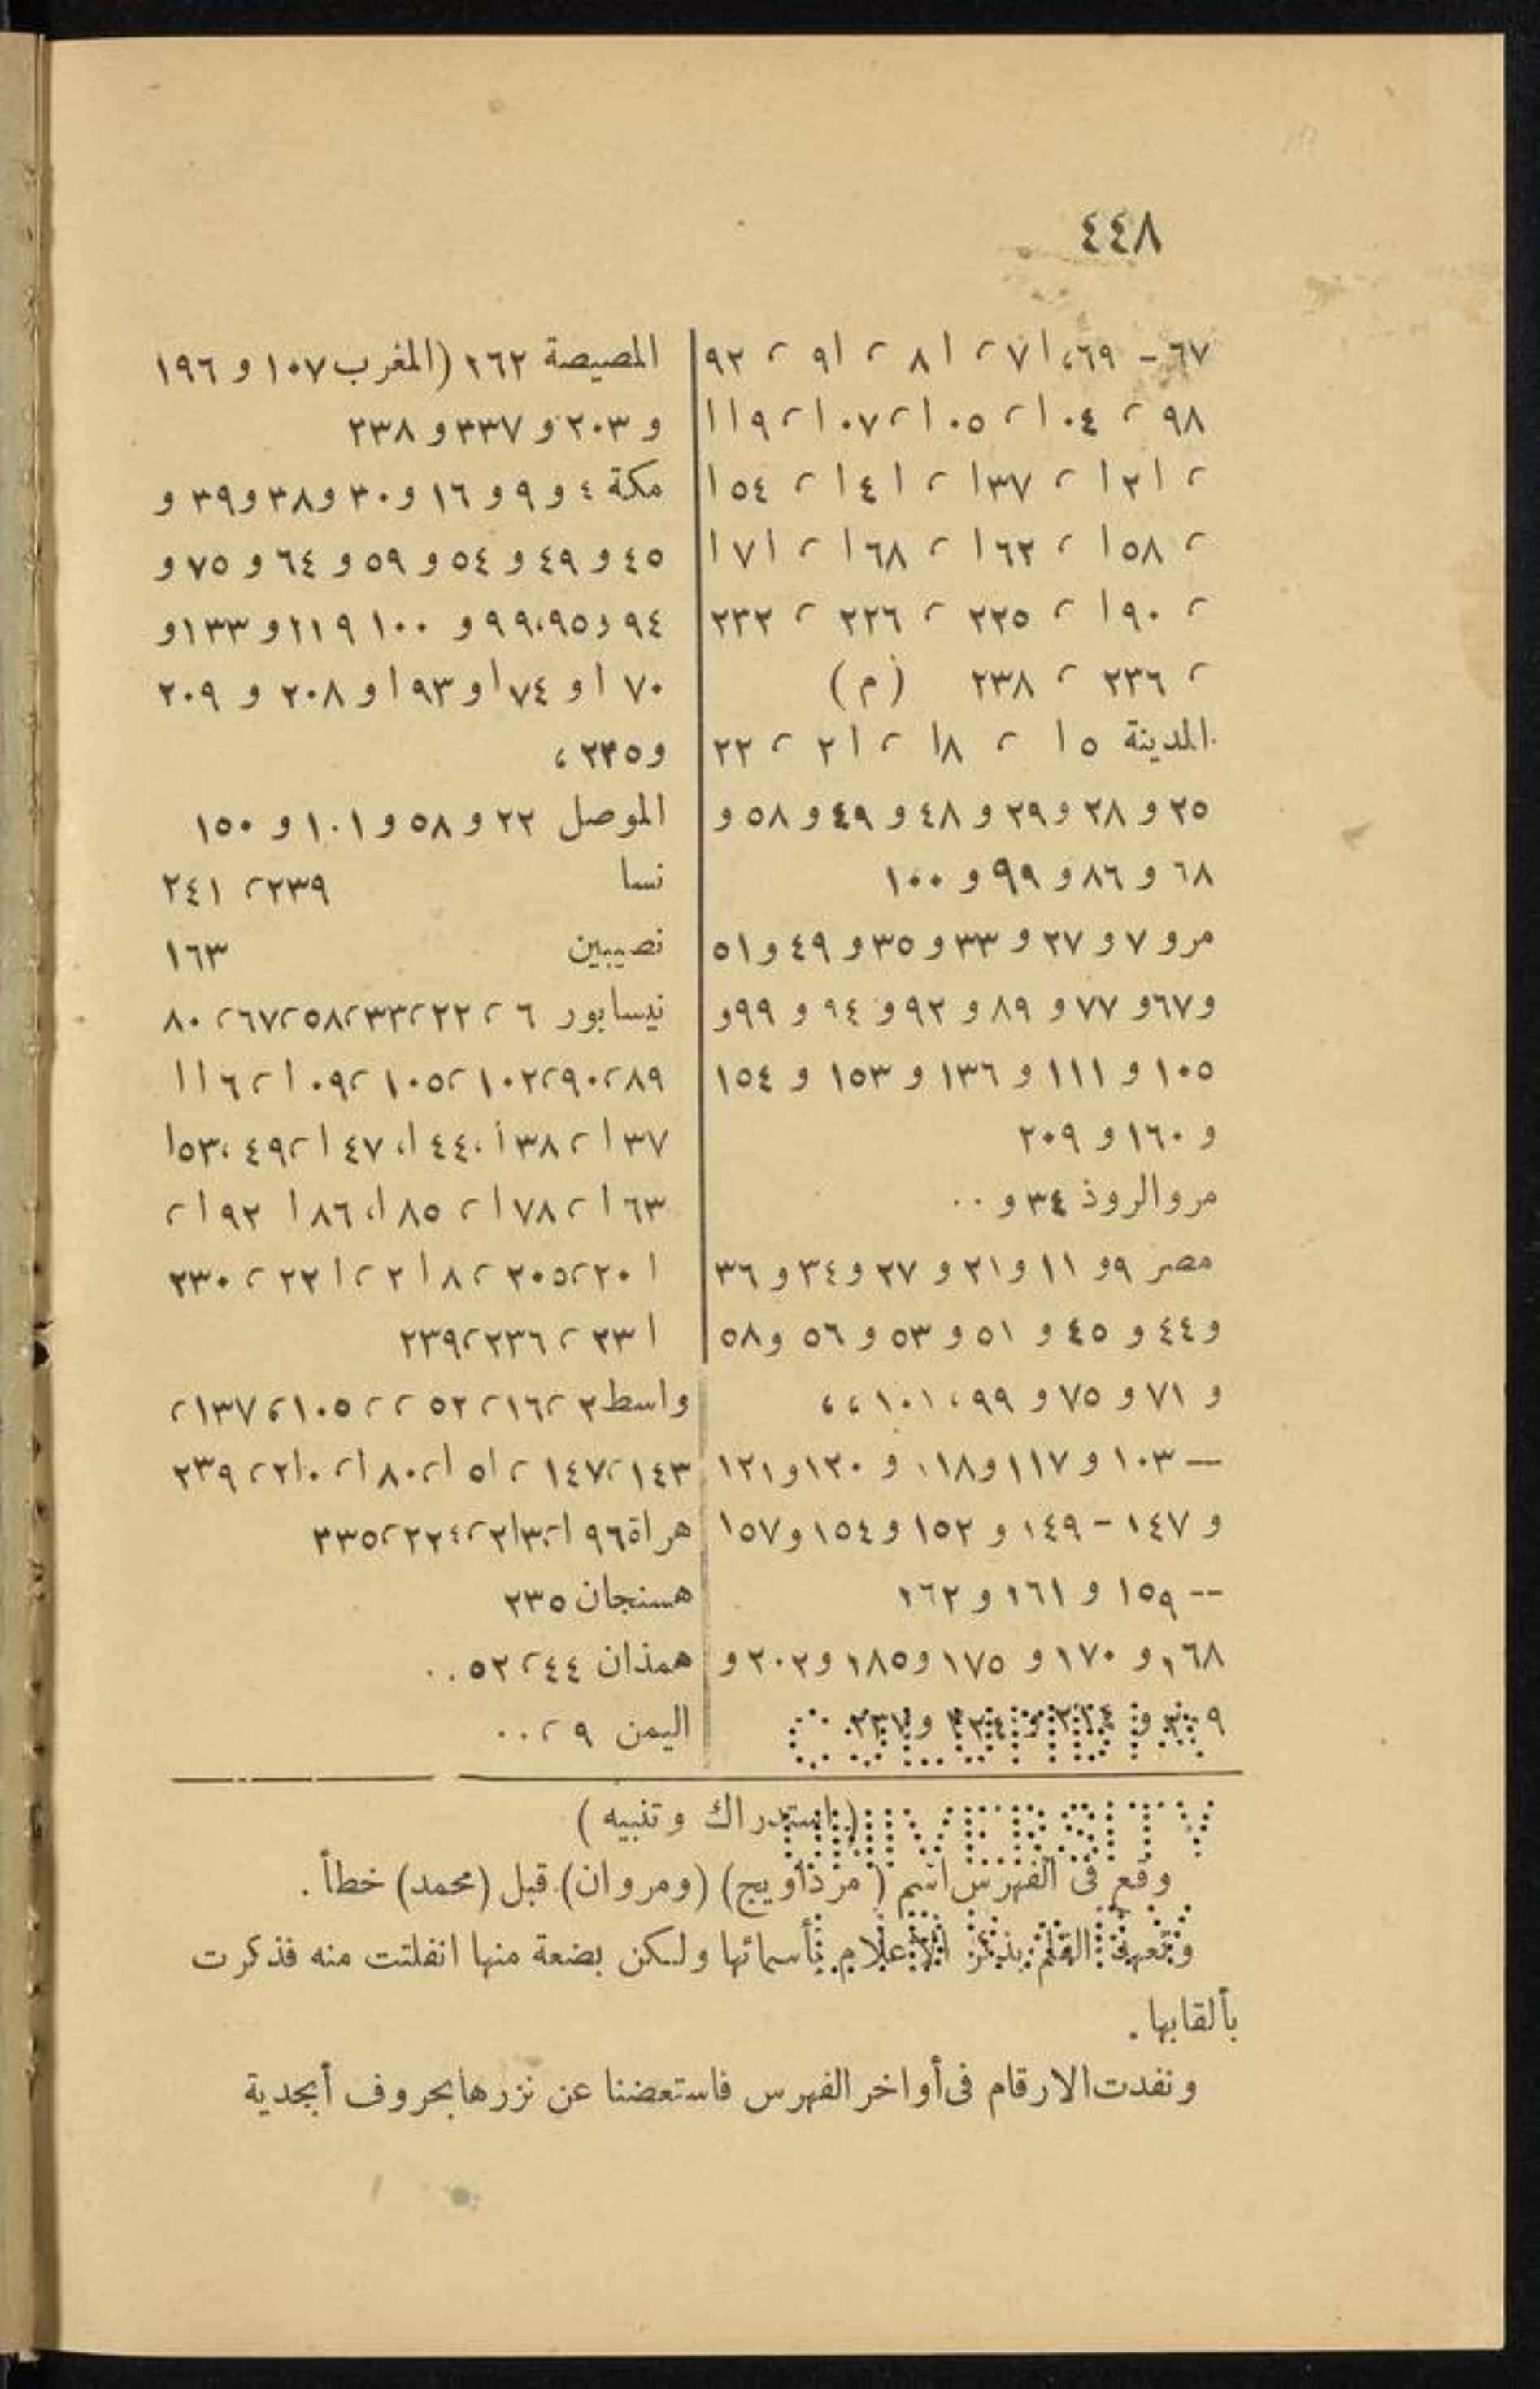 ٤٤٨
٦٧ - ٦٩، ٧١ ، ٨١ ، ٩١ ، ٩٢
٩٨ ، ١٠٤ ، ١٠٥ ، ١٠٧ ، ١١٩
، ١٢١ ، ١٣٧ ، ١٤١ ، ١٥٤
، ١٥٨ ، ١٦٢ ، ١٦٨ ، ١٧١
، ١٩٠ ، ٢٢٥ ، ٢٢٦ ، ٢٣٢
، ٢٣٦ ، ٢٣٨ (م)
المدينة ١٥ ، ١٨ ، ٢١ ، ٢٢
٢٥ و ٢٨ و ٢٩ و ٤٨ و ٤٩ و ٥٨ و
٦٨ و ٨٦ و ٩٩ و ١٠٠
مرو ٧ و ٢٧ و ٣٣ و ٣٥ و ٤٩ و ٥١
و ٦٧ و ٧٧ و ٨٩ و ٩٢ و ٩٤ و ٩٩ و
١٠٥ و ١١١ و ١٣٦ و ١٥٣ و ١٥٤
و ١٦٠ و ٢٠٩
مروالروذ ٣٤ و ..
مصر ٩ و ١١ و ٢١ و ٢٧ و ٣٤ و ٣٦
و ٤٤ و ٤٥ و ٥١ و ٥٣ و ٥٦ و ٥٨
و ٧١ و ٧٥ و ٩٩ ، ١٠١ ، ،
— ١٠٣ و ١١٧ و ١١٨ و ١٢٠ و ١٢١
و ١٤٧ - ١٤٩ و ١٥٢ و ١٥٤ و ١٥٧
-- ١٥٩ و ١٦١ و ١٦٢
١٦٨ و ١٧٠ و ١٧٥ و ١٨٥ و ٢٠٢ و
المصيصة ٢٦٢ (المغرب ١٠٧ و ١٩٦
و ٢٠٣ و ٢٣٧ و ٢٣٨
مكة ٤ و ٩ و ١٦ و ٣٠ و ٣٨ و ٣٩ و
٤٥ و ٤٩ و ٥٤ و ٥٩ و ٦٤ و ٧٥ و
٩٤ و ٩٥، ٩٩ و ١٠٠ ١١٩ و ١٣٣ و
١٧٠ و ١٧٤ و ١٩٣ و ٢٠٨ و ٢٠٩
و ٢٣٥ ،
الموصل ٢٢ و ٥٨ و ١٠١ و ١٥٠
نسا ٢٣٩ ، ٢٤١
نصيبين ١٦٣
نيسابور ٦ ، ٢٢ ، ٣٣ ، ٥٨ ، ٦٧ ، ٨٠
٨٩ ، ٩٠ ، ١٠٢ ، ١٠٥ ، ١٠٩ ، ١١٦
١٣٧ ، ١٣٨ ، ١٤٤ ، ١٤٧ ، ١٤٩ ، ١٥٣
١٦٣ ، ١٧٨ ، ١٨٥ ، ١٨٦ ١٩٢ ،
٢٠١ ، ٢٠٥ ، ٢١٨ ، ٢٢١ ، ٢٣٠
٢٣١ ، ٢٣٦ ، ٢٣٩
واسط ٢ ، ١٦ ، ٥٢ ، ، ١٠٥ ، ١٣٧ ،
١٤٣ ، ١٤٧ ، ١٥١ ، ١٨٠ ، ٢١٠ ، ٢٣٩
هراة ١٩٦
هسنجان ٢٣٥
همذان ٤٤ ، ٥٢ ..
اليمن ٩ ، ..
(استدراك وتنبيه)
وقع فى الفهرس اسم (مرذاويج) (ومروان) قبل (محمد) خطأ .
وتعهد القلم بذكر الأعلام بأسمائها ولكن بضعة منها انفلتت منه فذكرت
بألقابها .
ونفدت الارقام فى أواخر الفهرس فاستعضنا عن نزرها بحروف أبجدية
UNIVERSITY